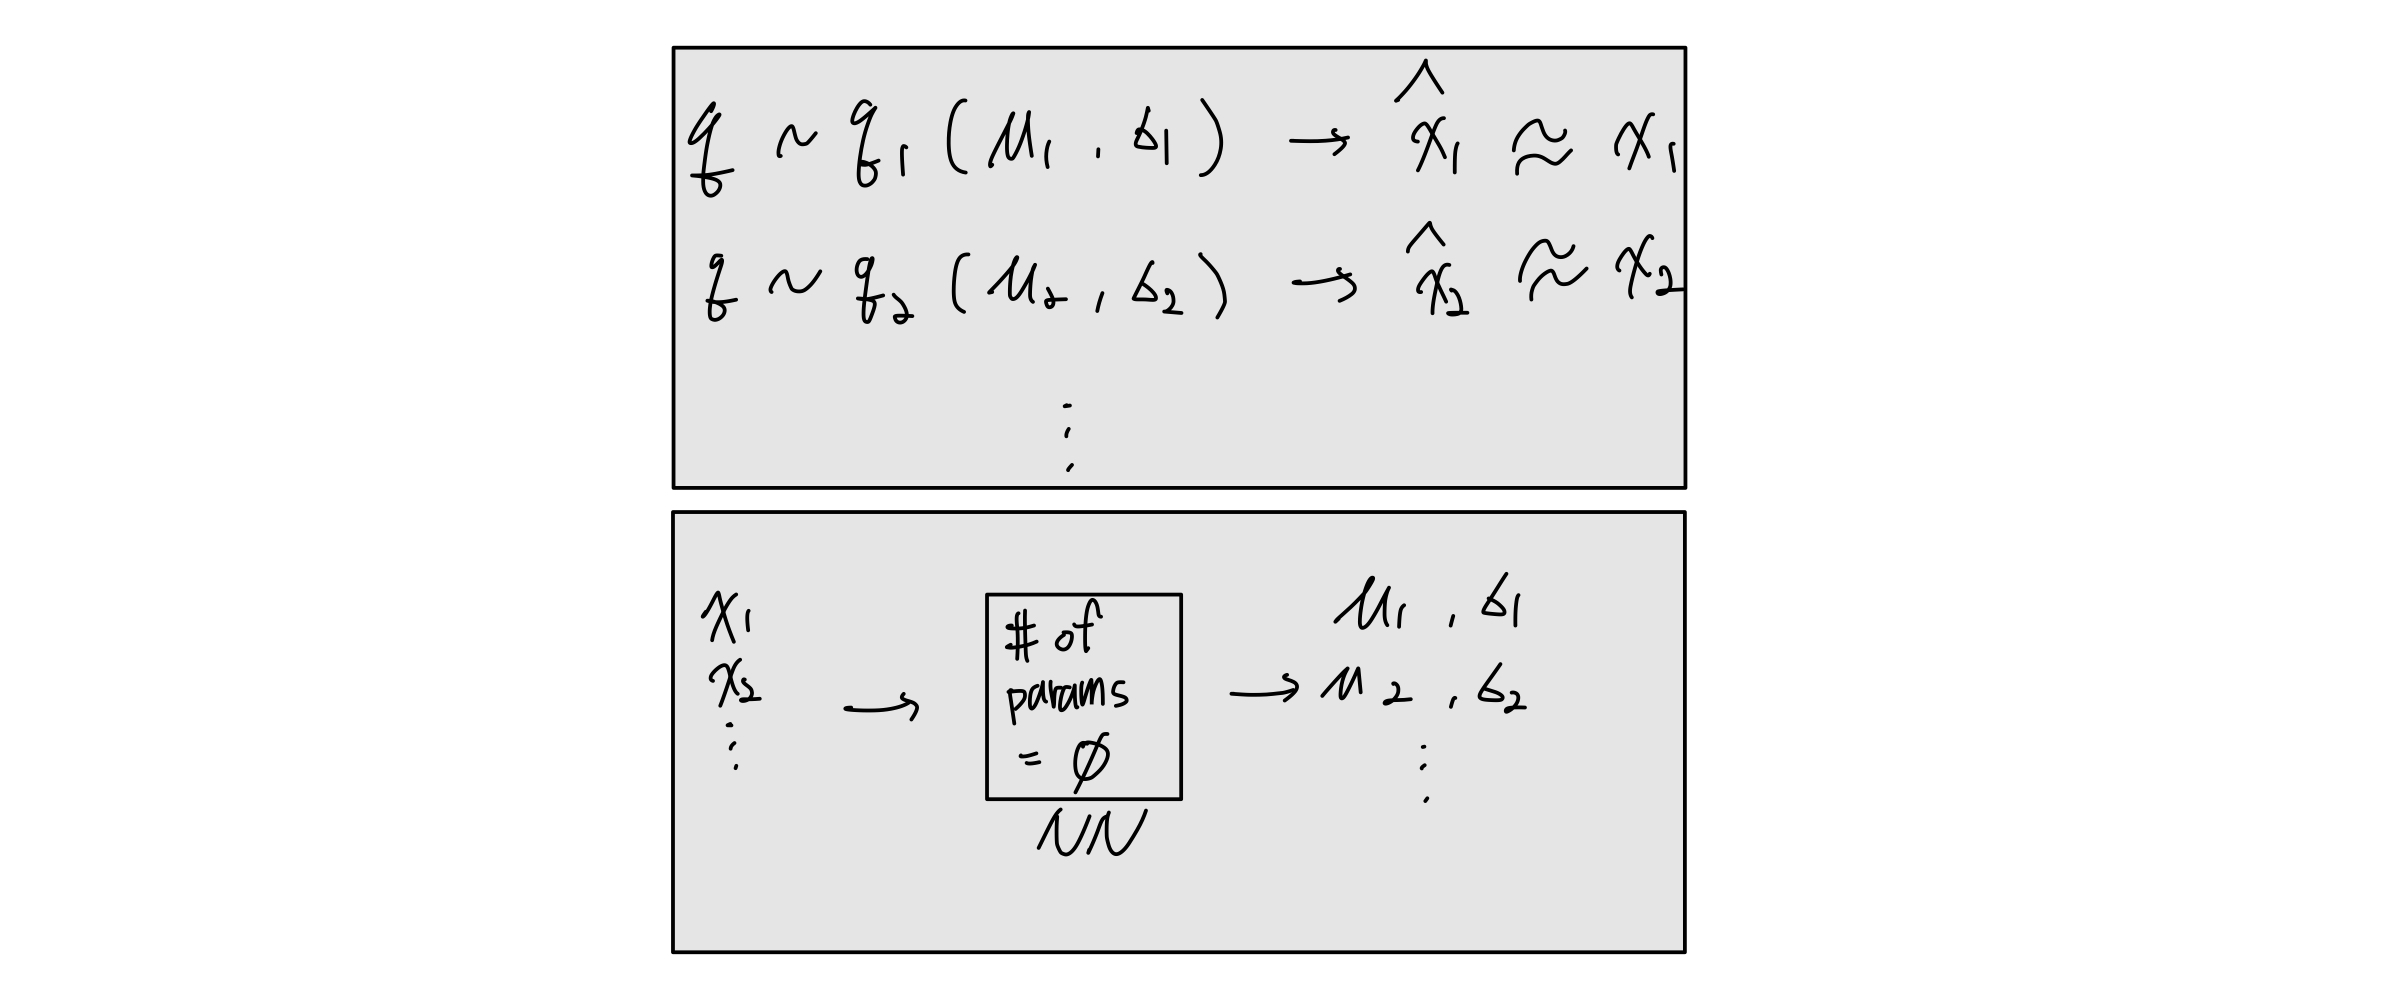 q ~ q₁ (μ₁ , σ₁) → x̂₁ ≈ x₁
q ~ q₂ (μ₂ , σ₂) → x̂₂ ≈ x₂
⋮
x₁
x₂
⋮
→
# of
params
= ϕ
NN
→
μ₁ , σ₁
μ₂ , σ₂
⋮